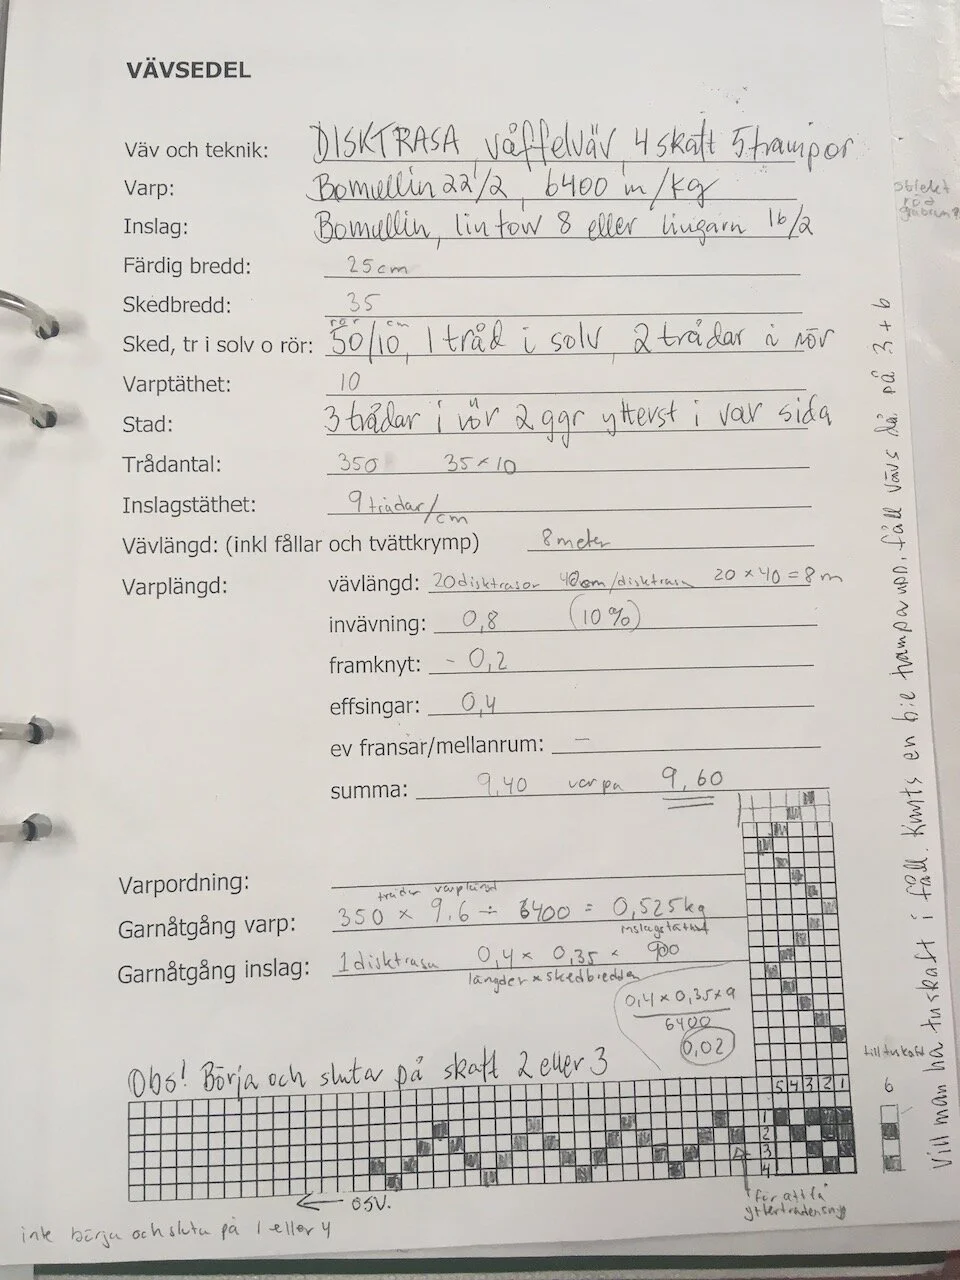 VÄVSEDEL
Väv och teknik: DISKTRASA, våffelväv, 4 skaft 5 trampor
Varp: Bomullin 22/2, 6400 m/kg
Inslag: Bomullin, lintow 8 eller lingarn 16/2
Färdig bredd: 25cm
Skedbredd: 35
rör cm
Sked, tr i solv o rör: 50/10, 1 tråd i solv, 2 trådar i rör
Varptäthet: 10
Stad: 3 trådar i rör 2 ggr ytterst i var sida
Trådantal: 350 35 × 10
Inslagstäthet: 9 trådar/cm
Vävlängd: (inkl fållar och tvättkrymp) 8 meter
Varplängd: vävlängd: 20 disktrasor 40cm/disktrasa 20 × 40 = 8 m
invävning: 0,8 (10%)
framknyt: - 0,2
effsingar: 0,4
ev fransar/mellanrum: -
summa: 9,40 varpa 9,60
Varpordning:
trådar varplängd
Garnåtgång varp: 350 × 9.6 ÷ 6400 = 0,525kg
inslagstäthet
Garnåtgång inslag: 1 disktrasa 0,4 × 0,35 × 900
längder × skedbredden
0,4 × 0,35 × 9
6400
0,02
Obs! Börja och sluta på skaft 2 eller 3
5 4 3 2 1
1
2
3
4
till tuskaft
6
OSV.
"för att få
inte börja och sluta på 1 eller 4
Vill man ha tuskaft i fåll. Knyts en bie trampa upp, fåll vävs då på 3 + 6